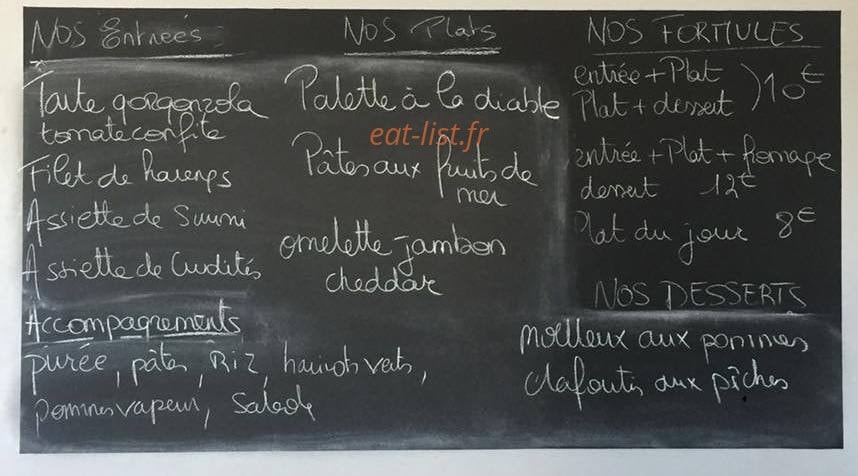 NOS Entrées
Tarte gorgonzola
tomate confite
Filet de harengs
Assiette de Surimi
Assiette de Crudités
Accompagnements
purée, pâtes, Riz, haricots verts,
pommes vapeur, Salade
NOS Plats
Palette à la diable
eat-list.fr
Pâtes aux fruits de
mer
omelette jambon
cheddar
NOS FORMULES
entrée + Plat
Plat + dessert ) 10€
entrée + Plat + fromage
dessert 12€
Plat du jour 8€
NOS DESSERTS
moelleux aux pommes
clafoutis aux pêches